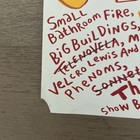 Small
Bathroom Fire,
Big Buildings,
Telenovela, M
Velcro Lewis And
Phenoms,
Sonne
Th
Show